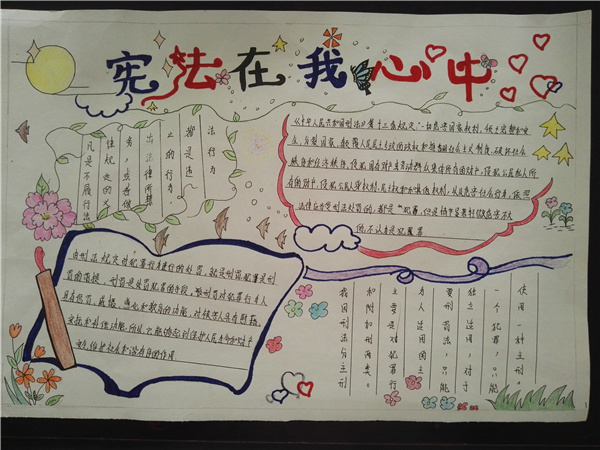 宪法在我心中
凡是不履行法
律规定的义
务，或者做
出法律所禁
止的行为
都是违
法行为
《中华人民共和国刑法》第十三条规定"一切危害国家主权、领土完整和安
全，分裂国家、颠覆人民民主专政的政权和推翻社会主义制度，破坏社会
秩序和经济秩序，侵犯国有财产或者劳动群众集体所有的财产，侵犯公民私人所
有的财产，侵犯公民人身权利、民主权和其他权利，以及危害社会行为，依照
法律应当受刑法处罚的，都是"犯罪，但是情节显著轻微危害不大
的，不认为是犯罪
由刑法规定对犯罪行为进行的处罚，就是刑罚，犯罪是刑
罚的前提，刑罚是处罚犯罪的手段，
具有惩罚、
的作用
我国刑法分主刑
和附加刑两类。
主要是对犯罪行
为人适用国主
要刑罚法，只能
独立适用，对于
一个犯罪，只能
使用一种主刑。